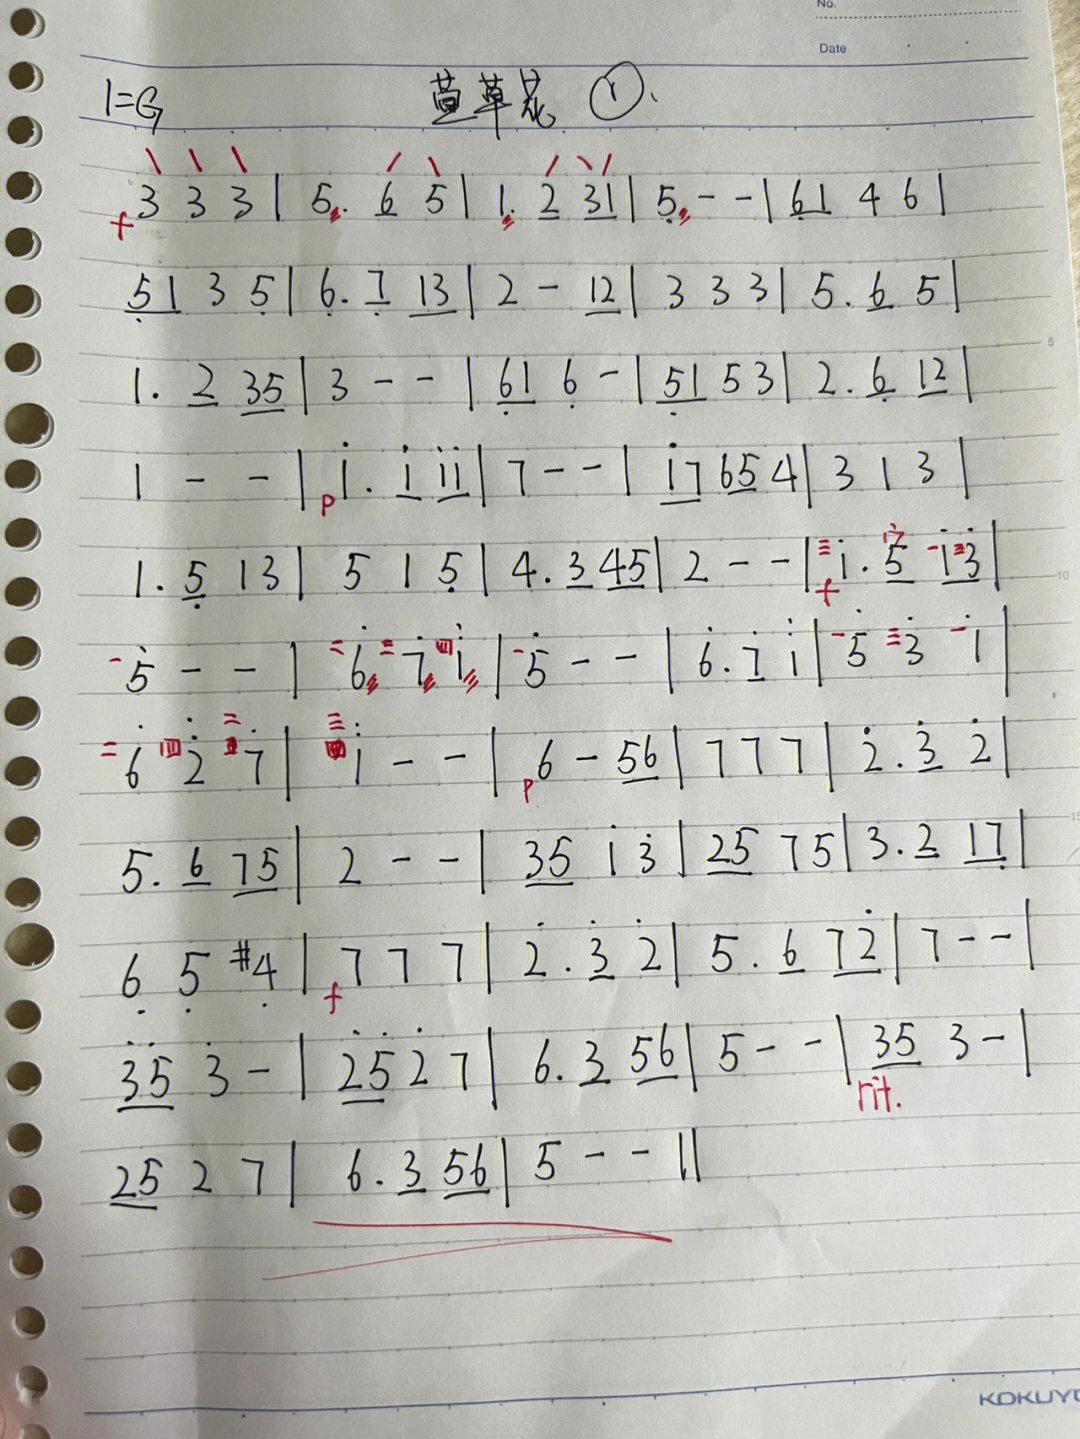 No.
Date
1=G 萱草花 ①.
f 3 3 3 | 5. 6 5 | 1. 2 31 | 5. - - | 61 4 6 |
51 3 5 | 6. 7 13 | 2 - 12 | 3 3 3 | 5. 6 5 |
5
1. 2 35 | 3 - - | 61 6 - | 51 5 3 | 2. 6 12 |
1 - - | p i. i ii | 7 - - | i7 65 4 | 3 1 3 |
1. 5 13 | 5 1 5 | 4. 3 45 | 2 - - | f i. 5 i3 |
10
5 - - | 6 7 i | 5 - - | 6. 7 i | 5 3 i |
6 2 7 | i - - | p 6 - 56 | 7 7 7 | 2. 3 2 |
15
5. 6 75 | 2 - - | 35 i 3 | 25 7 5 | 3. 2 17 |
6 5 #4 | f 7 7 7 | 2. 3 2 | 5. 6 72 | 7 - - |
35 3 - | 25 2 7 | 6. 3 56 | 5 - - | 35 3 - |
rit.
25 2 7 | 6. 3 56 | 5 - - ||
KOKUYO